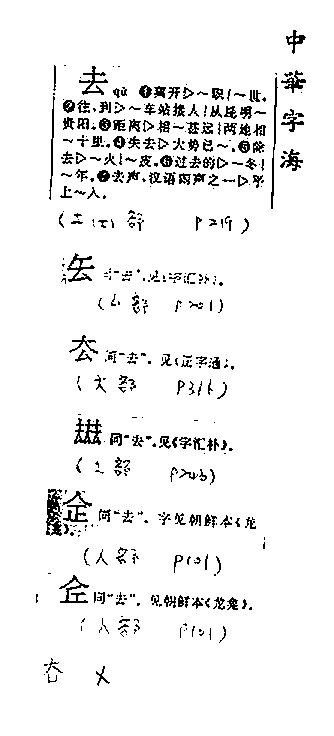 中華字海
去 qù ❶离开▷～职|～世。
❷往，到▷～车站接人|从昆明～
贵阳。❸距离▷相～甚远|两地相
～十里。❹失去▷大势已～。❺除
去▷～火|～皮。❻过去的▷～冬|
～年。❼去声，汉语四声之一▷平
上～入。
(土 部 P219)
同“去”。见《字汇补》。
(厶部 P201)
厺 同“去”。见《正字通》。
(大部
同“去”。见《字汇补》。
部
同“去”。字见朝鲜本《龙
龛》。
(人部 P101)
同“去”。见朝鲜本《龙龛》。
(人部 P101)